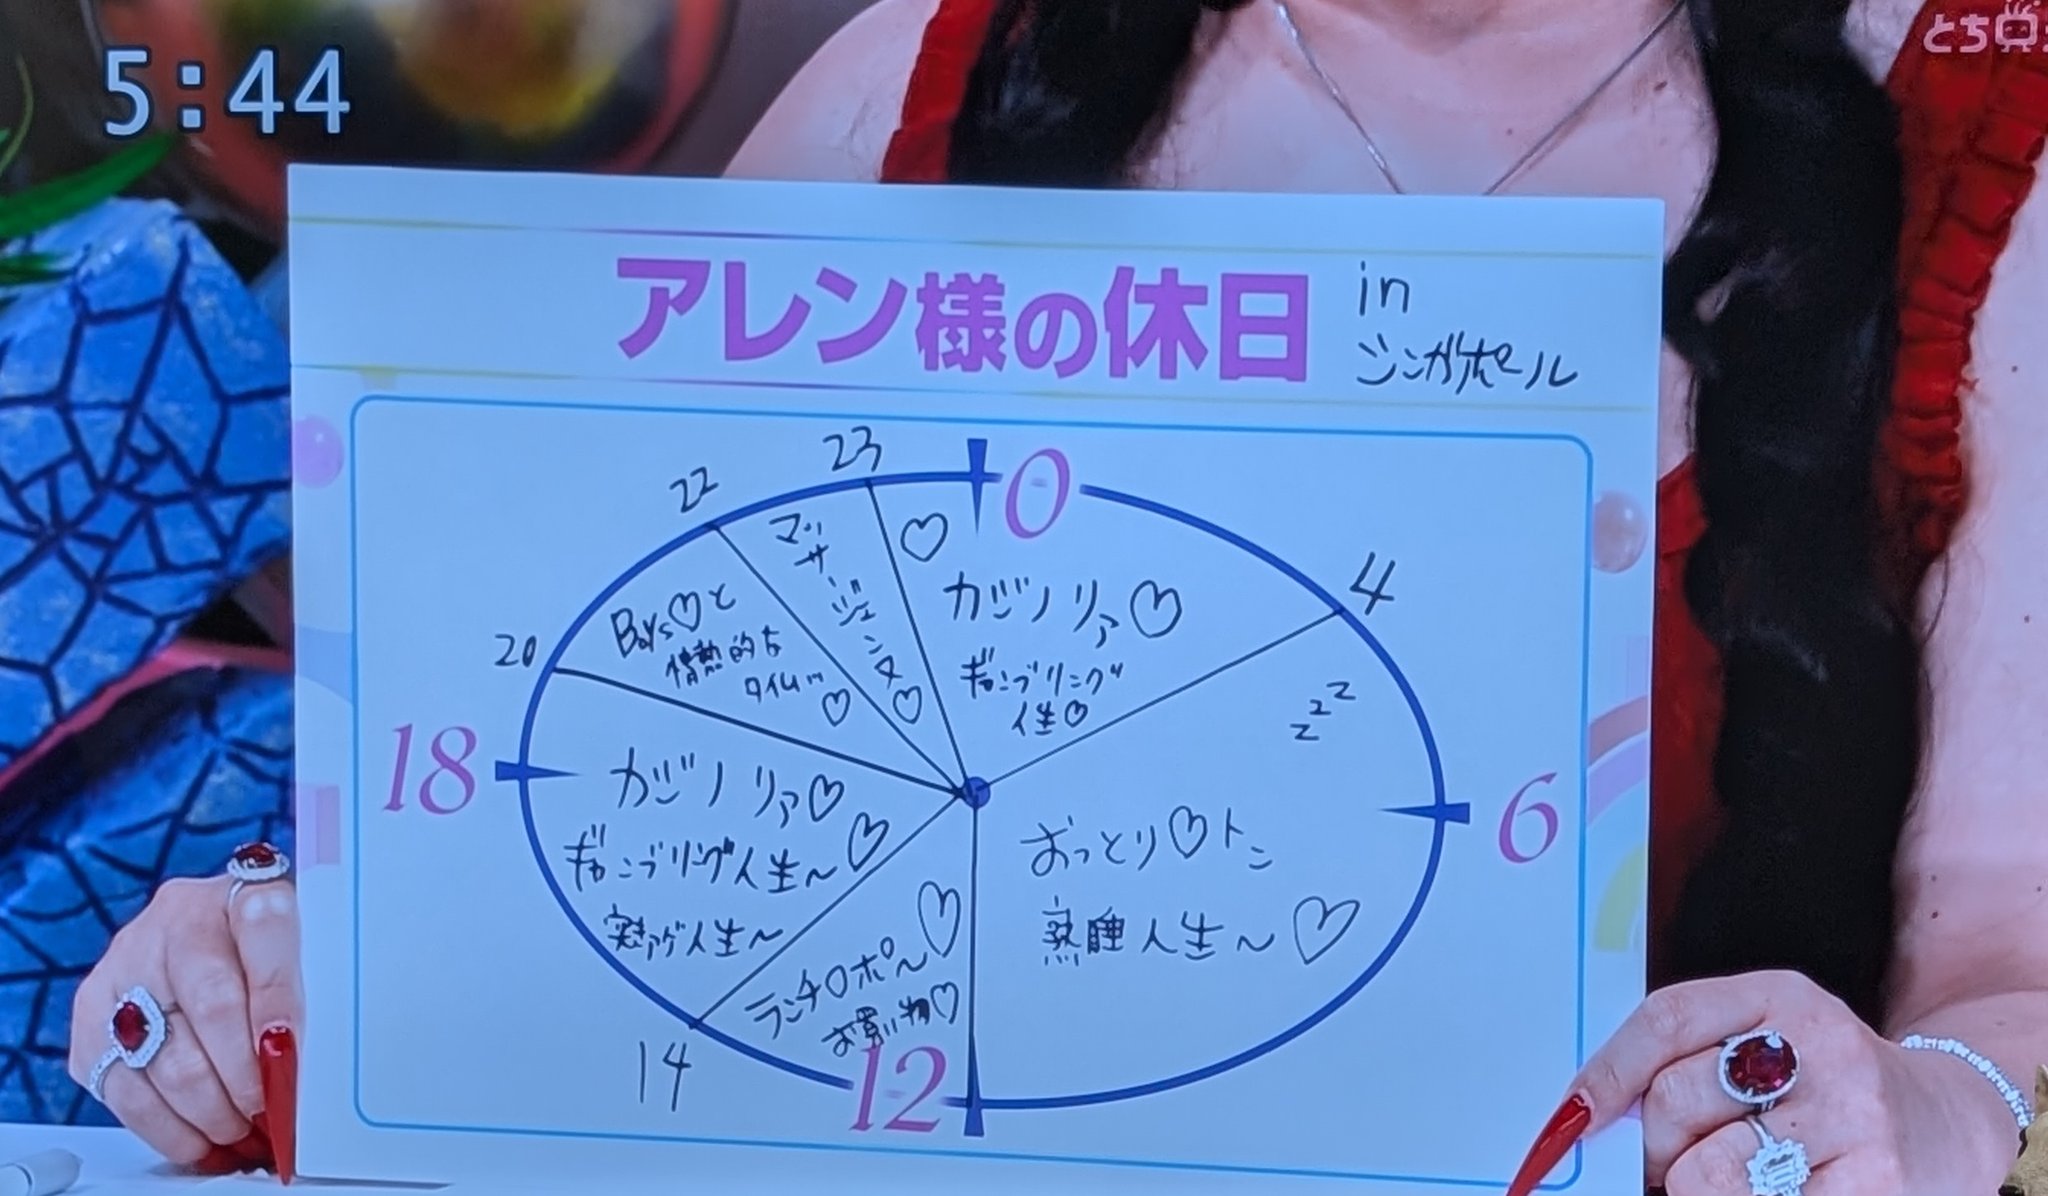 5:44
とち
アレン様の休日
in
シンガポール
0
4
6
12
14
18
20
22
23
カジノリア♡
ギャンブリング
人生♡
zzz
おっとり♡トン
熟睡人生～♡
ランチ ポ～♡
お買い物♡
カジノリア♡
ギャンブリング人生～♡
人生～
Boys♡と
情熱的な
タイム…
♡
マッサージェンヌ♡